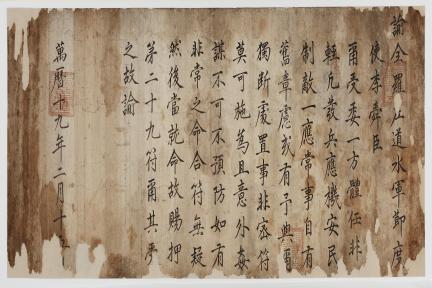 諭全羅左道水軍節度
使李舜臣
爾受委一方體任非
輕凡發兵應機安民
制敵一應常事自有
舊章慮或有予與爾
獨斷處置事非密符
莫可施爲且意外姦
謀不可不預防如有
非常之命合符無疑
然後當就命故賜押
第二十九符爾其受
之故諭
萬曆十九年二月十